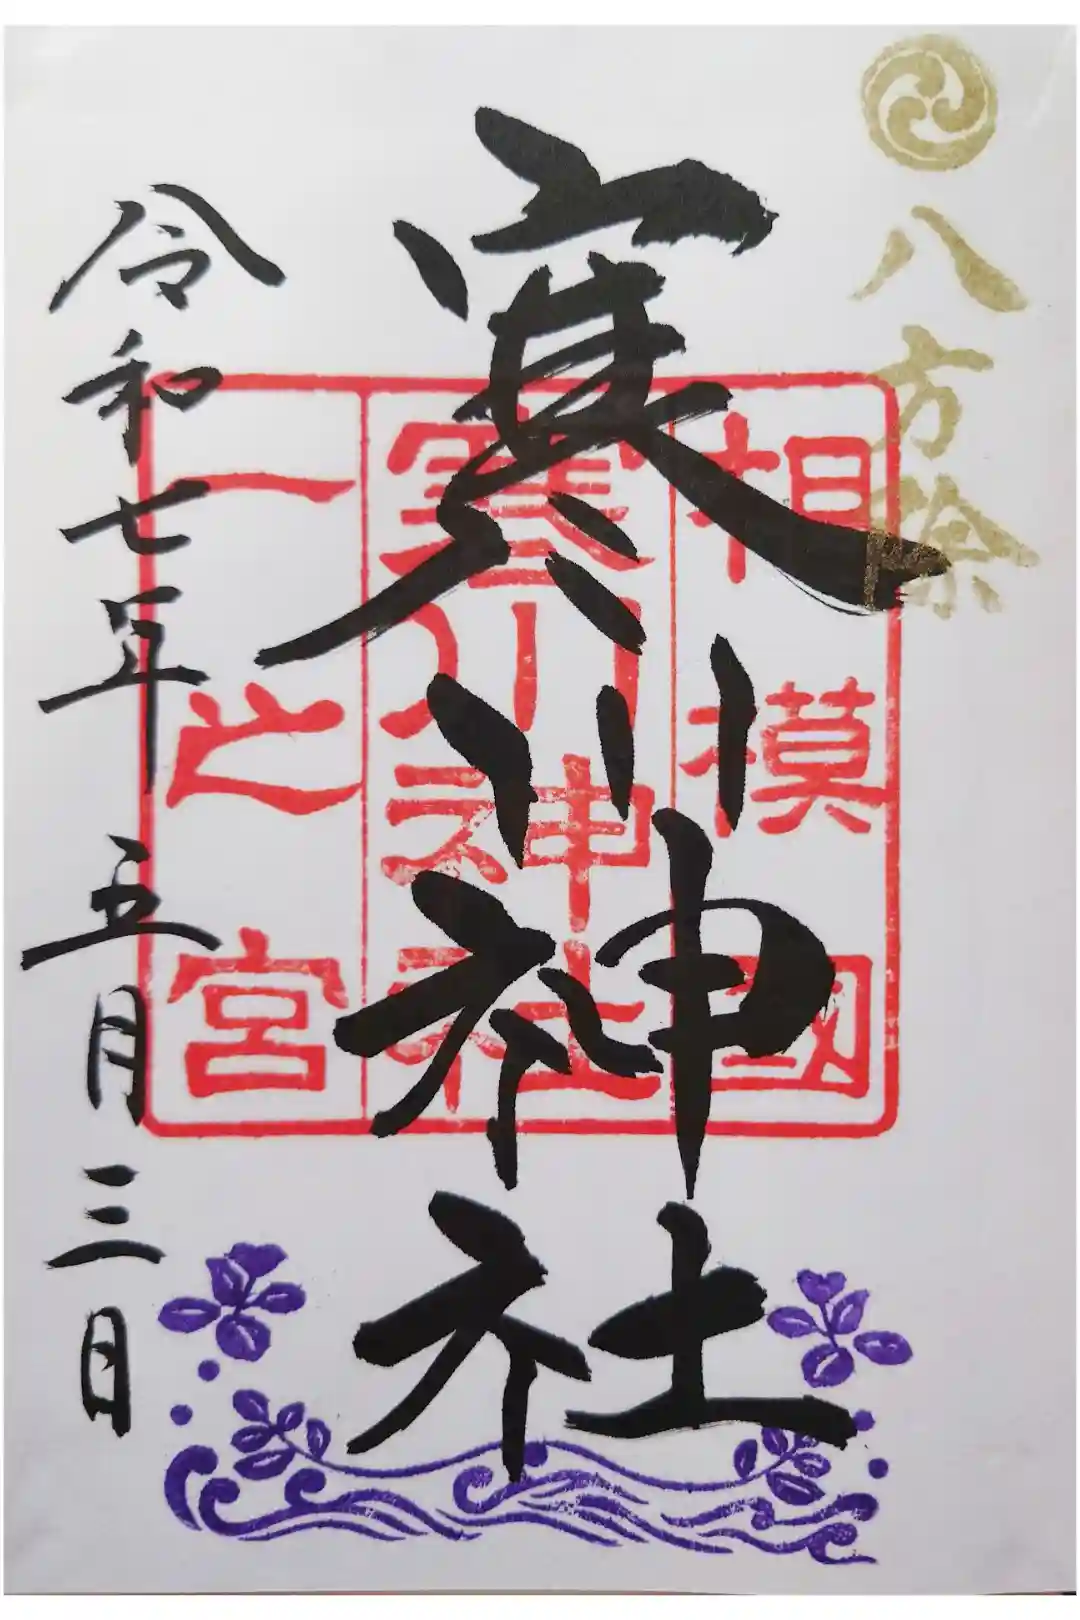 八方除
寒川神社
相模國
寒川神社
一之宮
令和七年五月三日